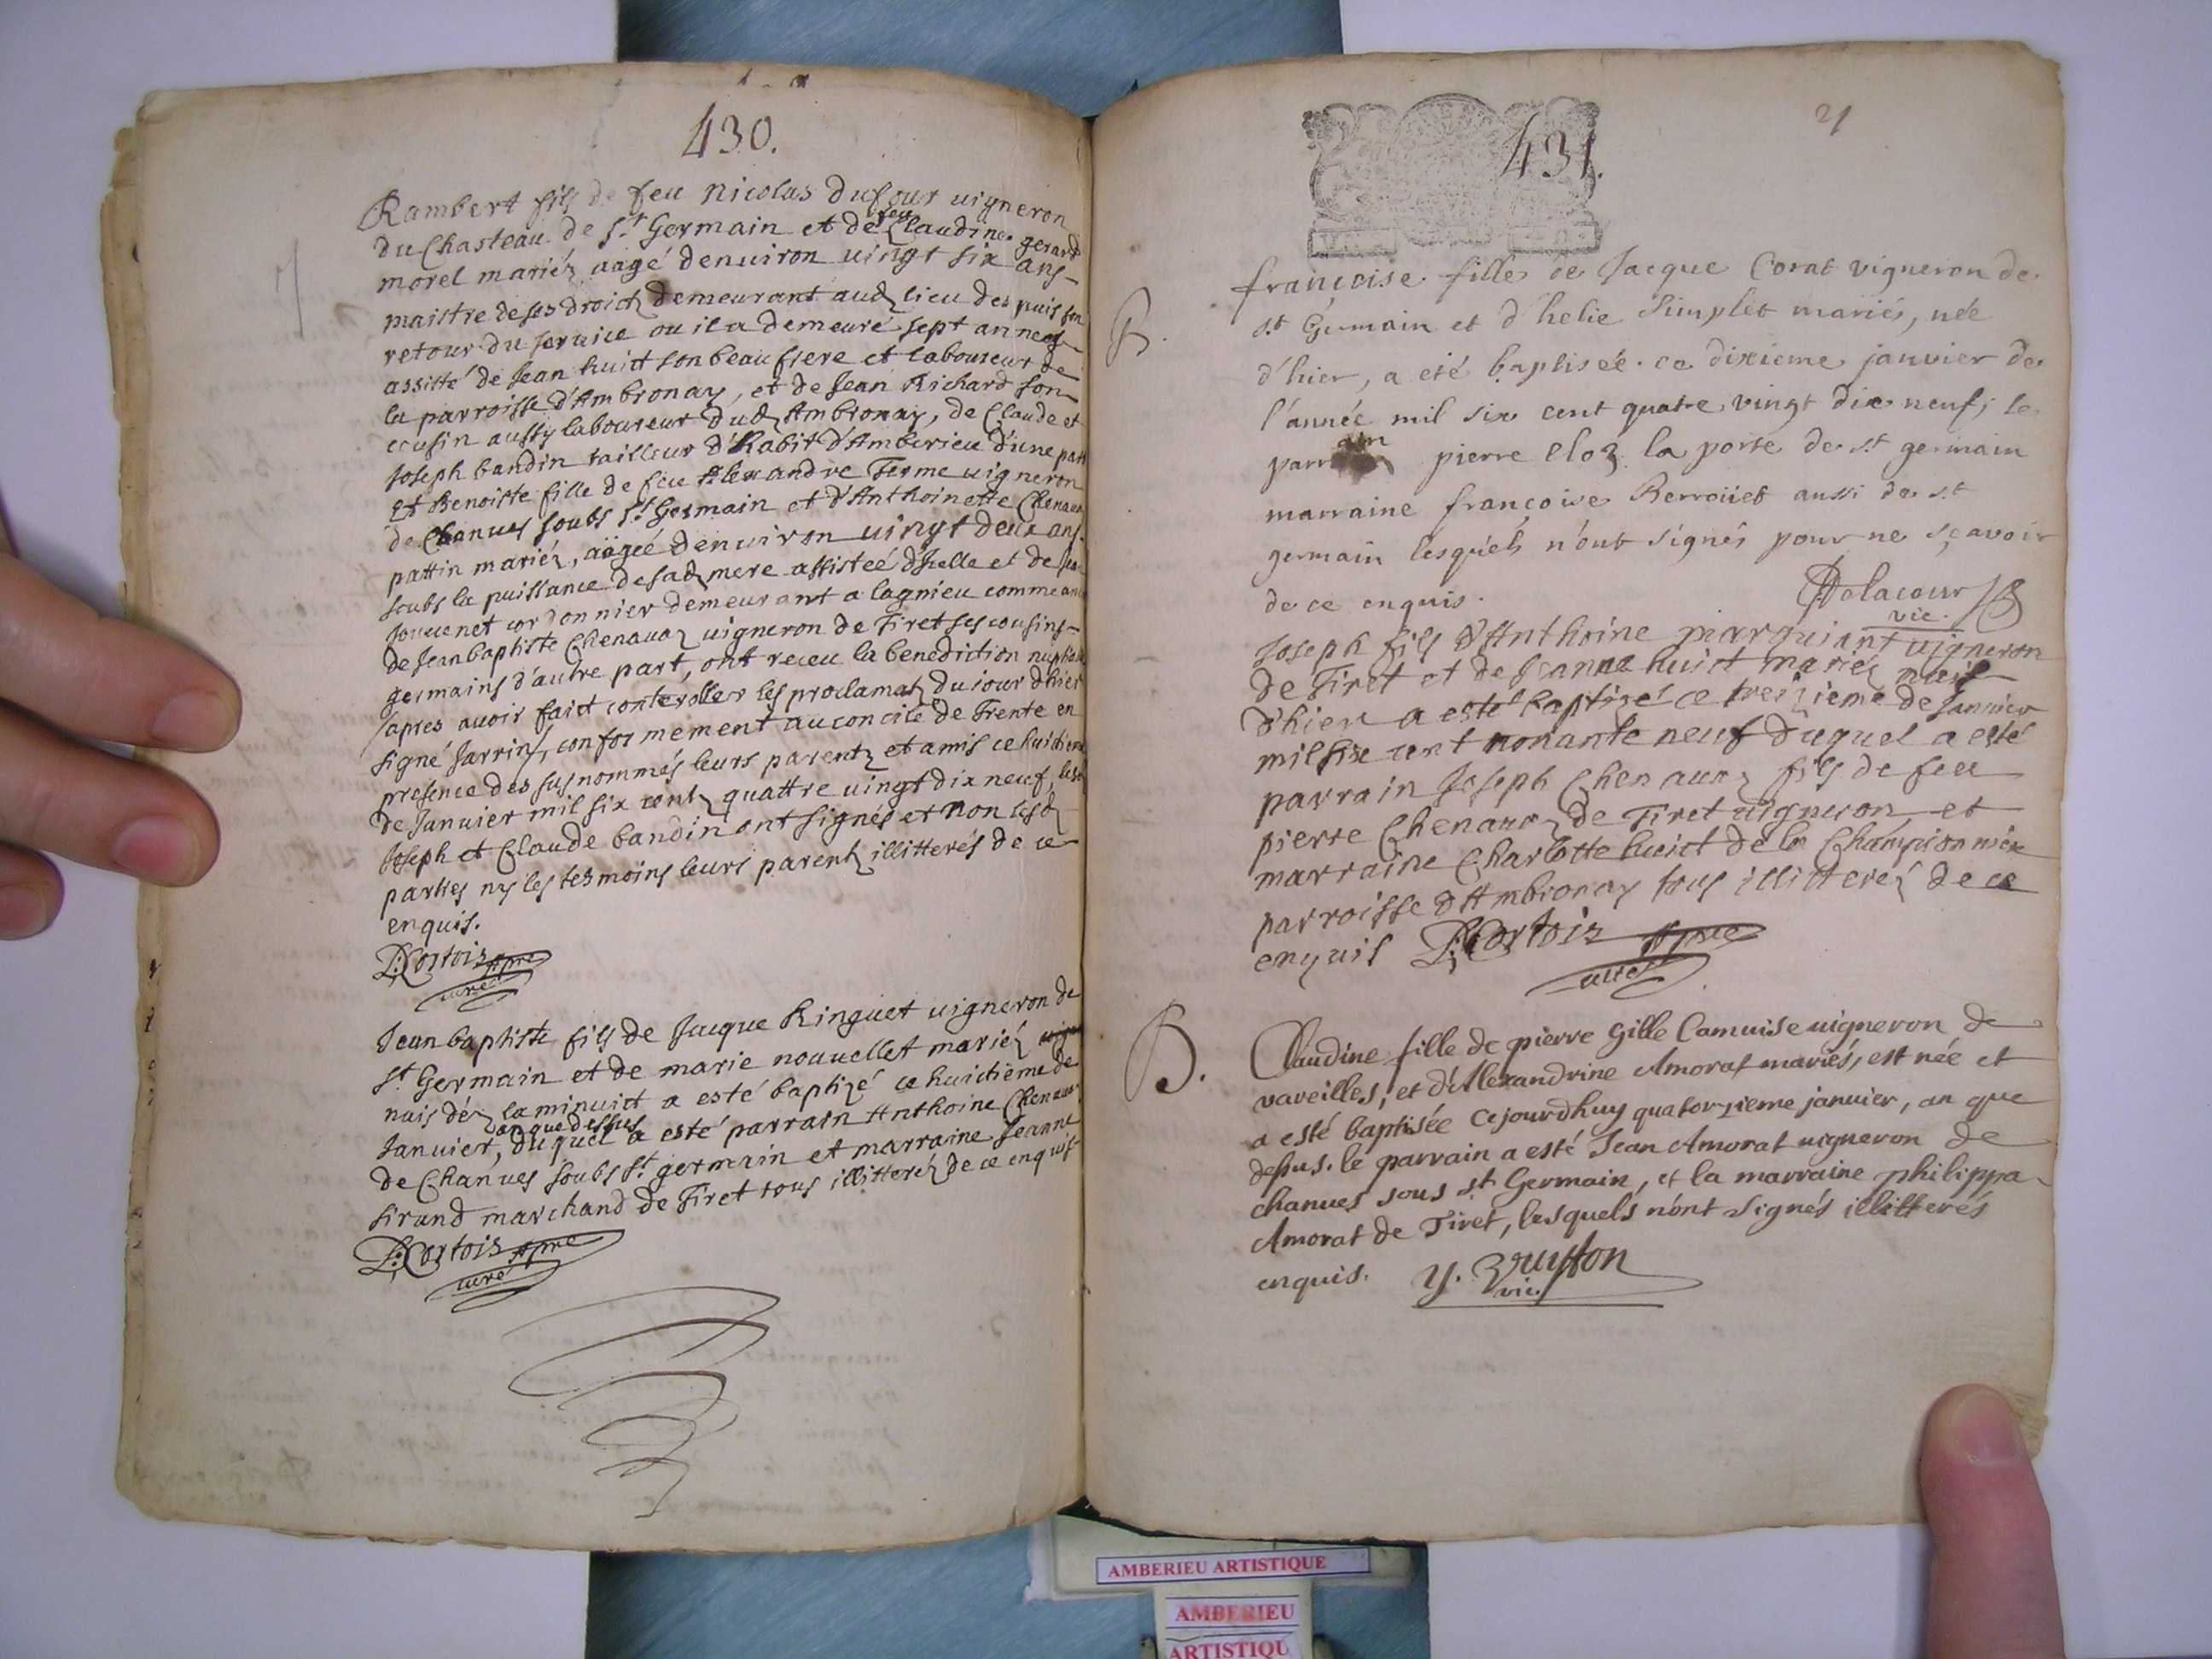 430.
Rambert fils de feu Nicolas Dufour uigneron
du Chasteau de St Germain et de feu Claudine gerard
morel mariéz aagé denuiron uingt six ans
maistre de ses droictz demeurant audz lieu despuis son
retour du seruice ou il a demeuré sept annees
assitté de Jean huict son beau frere et laboureur de
la parroisse d'Ambronay, et de Jean Richard son
cousin aussy laboureur dudz Ambronay, de Claude et
Joseph bandin tailleur d'habit d'Amberieu d'une part
Et Benoiste fille de feu Alexandre Ferme uigneron
de Chanues soubs St Germain et d'Anthoinette Chenauaz
pattin mariéz, aagée denuiron uingt deux ans
soubs la puissance de sadz mere assistée d'Icelle et de Jean
Jouuenet cordonnier demeurant a lagnieu comme aussi
de Jean baptiste Chenauaz uigneron de Tiret ses cousins
germains d'autre part, ont receu la benediction nuptiale
apres auoir faict conteroller les proclamatz du iour d'hier
signé Jarrin, conformement au concile de Trente en
presence des susnommés leurs parentz et amis ce huictieme
de Januier mil six centz quattre uingt dix neuf, lesdz
Joseph et Claude bandin ont signés et non lesdz
parties ny les tesmoins leurs parentz illitterés de ce
enquis.
P. Cortois Apre
curé
Jean baptiste fils de Jacque Ringuet uigneron de
St Germain et de marie nouuellet mariéz
nais déz la minuict a esté baptizé ce huictieme de
Januier, an que dessus duquel a esté parrain Anthoine Chenauaz
de Chanues soubs St germain et marraine Jeanne
sirand marchand de Tiret tous illitteréz de ce enquis
P. Cortois Apre
curé
21
431.
B.
françoise fille de Jacque Corat vigneron de
st Germain et d'helie simplet mariés, née
d'hier, a eté baptisée ce dixieme janvier de
l'année mil six cent quatre vingt dix neuf, le
parrain pierre cloz la porte de st germain
marraine françoise Berroüet aussi de st
germain lesquels n'ont signés pour ne sçavoir
de ce enquis.
Delacour
vic.
Joseph fils d'Anthoine pierguinant uigneron
de Tiret et de Jeanne huict mariéz nais
d'hier a esté baptizé ce treizieme de Januier
mil six cent nonante neuf duquel a esté
parrain Joseph Chenauaz fils de feu
pierre Chenauaz de Tiret uigneron, et
marraine Charlotte huict de la Championniere
parroisse d'Ambronay tous illitteréz de ce
enquis P. Cortois Apre
curé
B.
Claudine fille de pierre Gille Camuise uigneron de
vareilles, et d'Alexandrine Amorat mariés, est née et
a esté baptisée cejourdhuy quatorzieme janvier, an que
dessus. le parrain a esté Jean Amorat uigneron de
chanues sous st Germain, et la marraine philippa
Amorat de Tiret, lesquels n'ont signés illitterés
enquis.
vic.
AMBERIEU ARTISTIQUE
AMBERIEU
ARTISTIQU